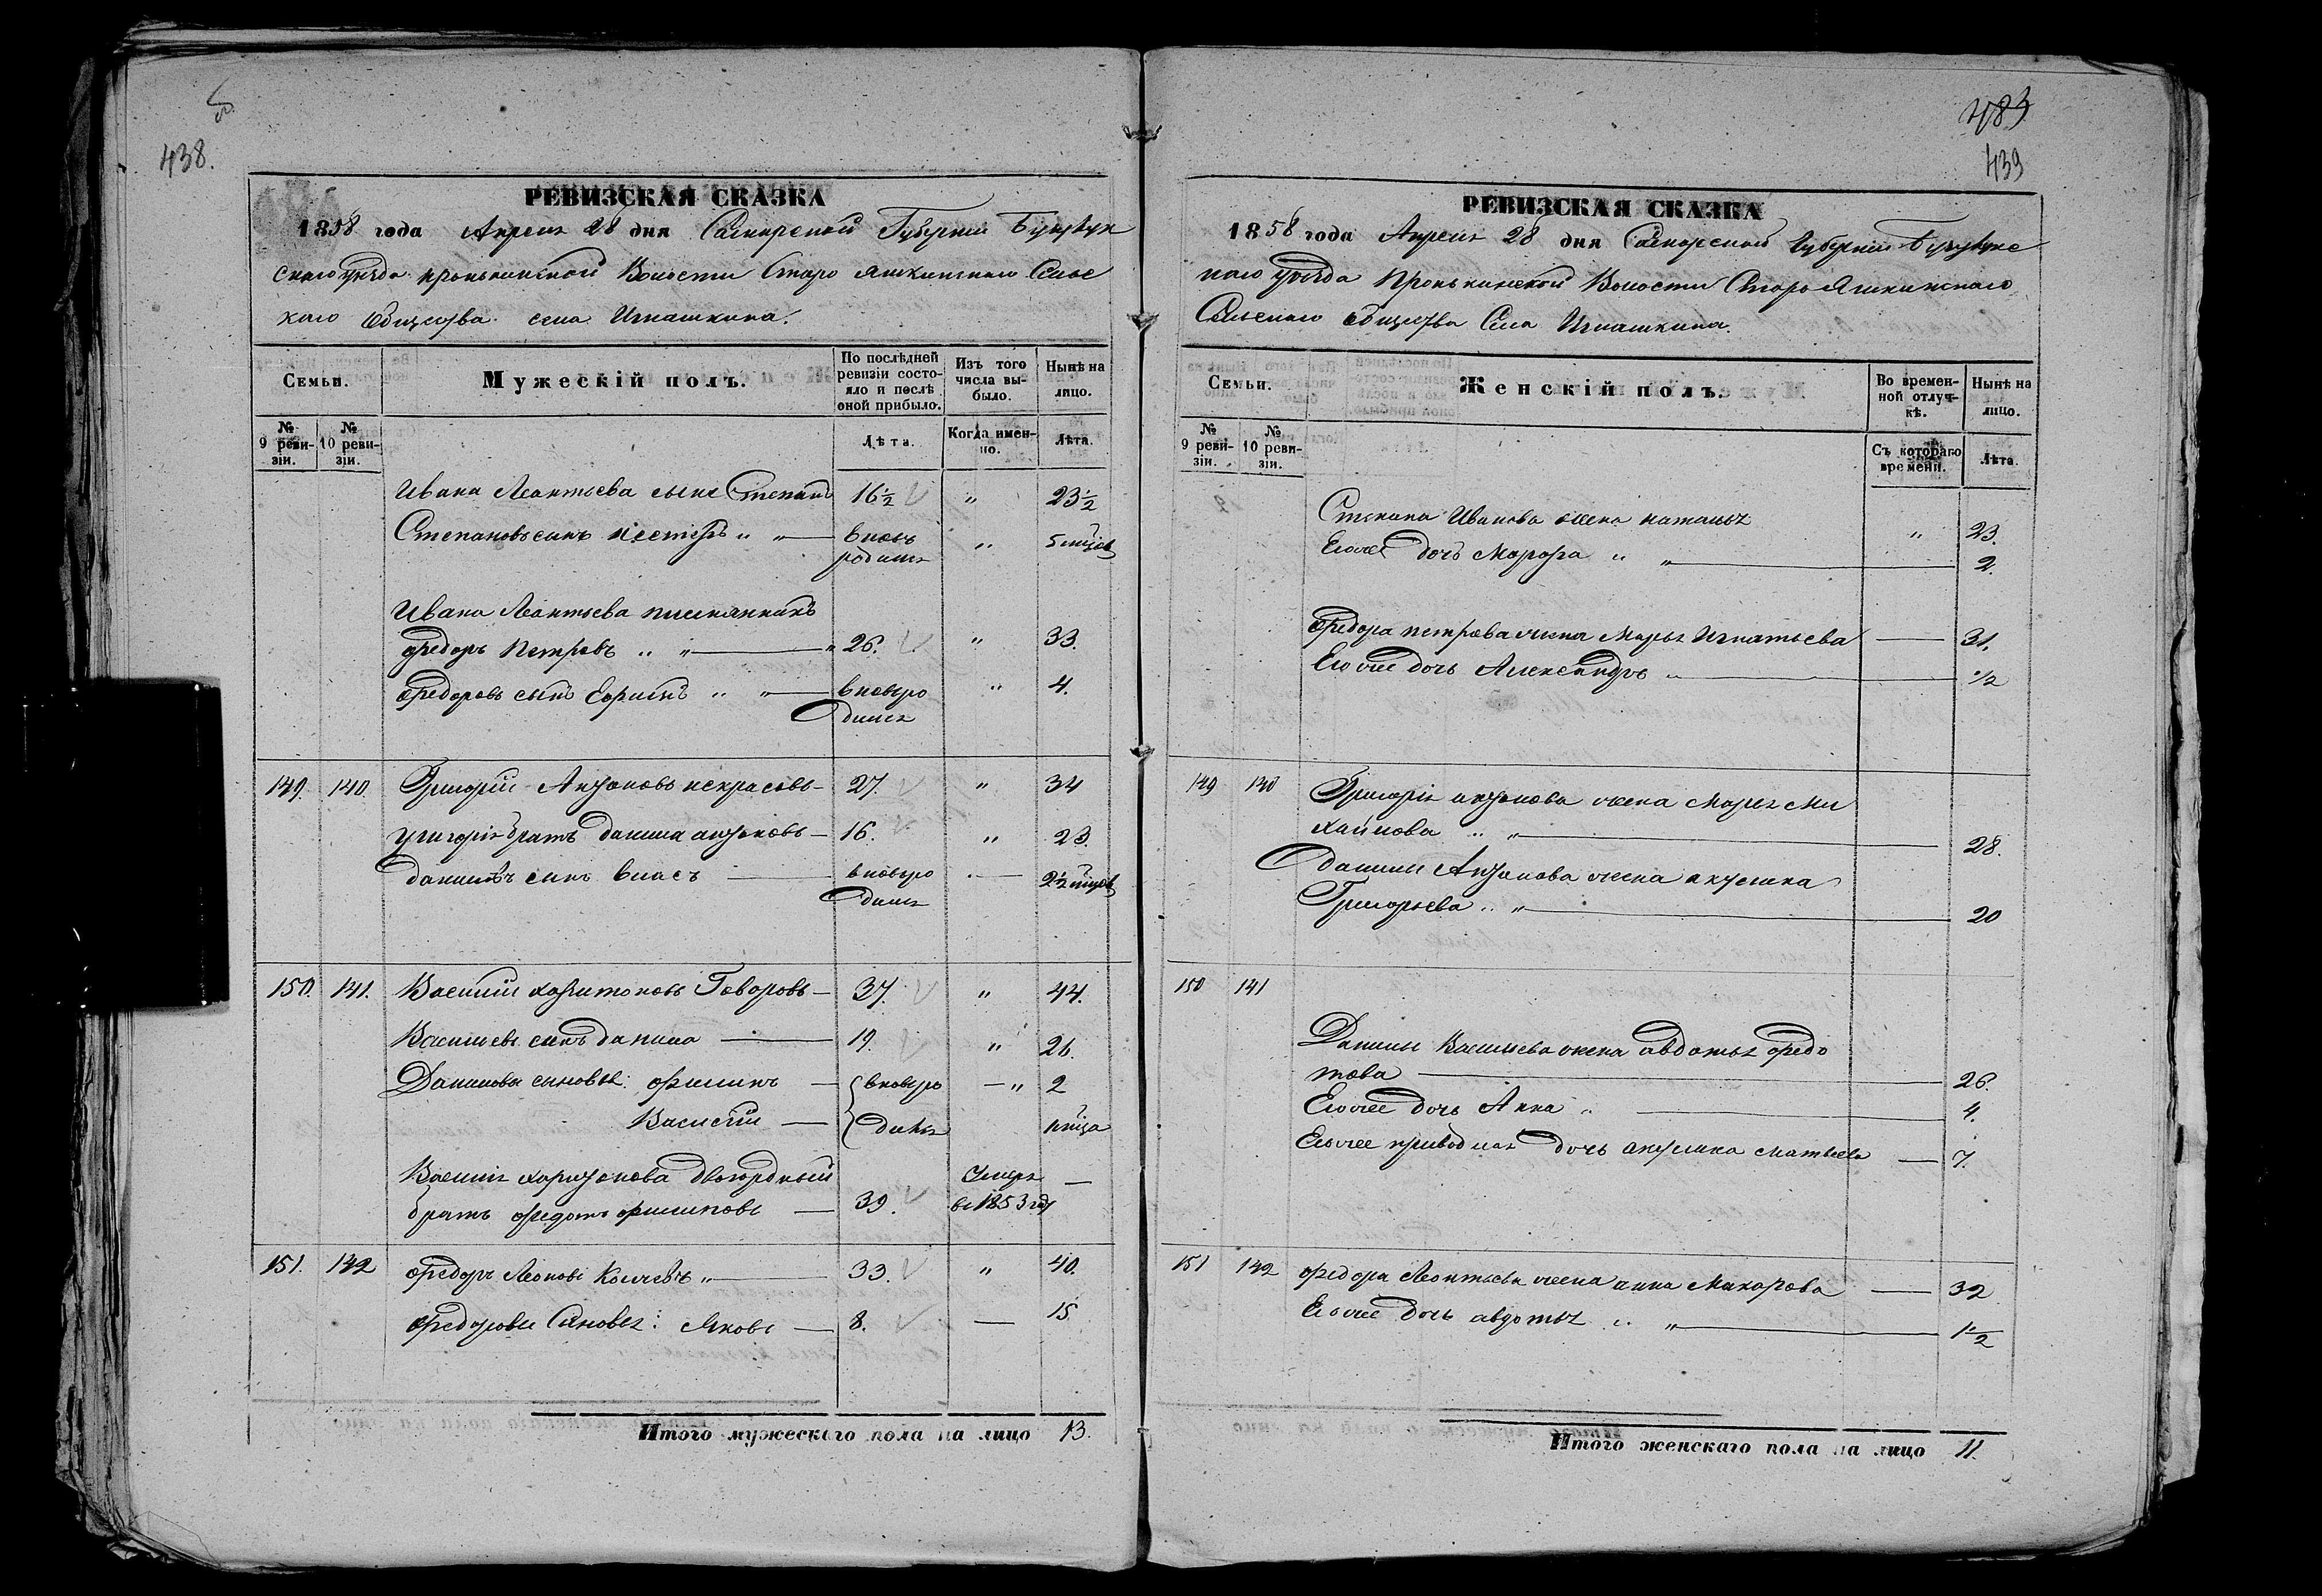 438.
483
439
РЕВИЗСКАЯ СКАЗКА
1858 года Апреля 28 дня Самарской Губернии Бузулук
скаго уезда проньконской Волости Старо яшкинскаго Сельс
каго общества села Игнашкина.
Семьи.
Мужескій полъ.
По послѣдней ревизіи состояло и послѣ оной прибыло.
Изъ того числа выбыло.
Нынѣ на лицо.
№ 9 ревизіи.
№ 10 ревизіи.
Лѣта.
Когда именно.
Лѣта.
Ивана Леонтьева сынъ Степанъ 16½ " 23½
Степановъ сынъ Нестеръ " " вновь родился "
Ивана Леонтьева племянникъ
Федоръ Петровъ " " 26. " 33.
Федоровъ сынъ Ефимъ " " вновъро " 4.
дился
149. 140. Григорій Антоновъ некрасовъ 27. " 34
григорія братъ данила антоновъ 16. " 23.
даниловъ сынъ власъ вновъро
дился
150. 141. Василій харитоновъ Говоровъ 37. " 44.
Васильевъ сынъ данила 19. " 26.
Даниловы сыновья: филипъ вновъро " 2
Василій дились
Василія харитонова двоюродный Умеръ
братъ федотъ филиповъ 39. въ 1853 году
151. 142 федоръ Леоновъ " 33. " 40.
федоровы Сыновья: Яковъ 8. 15
Итого мужескаго пола на лицо 13.
РЕВИЗСКАЯ СКАЗКА
1858 года Апреля 28 дня Самарской Губернии Бузулукс
каго уезда Пронькинской Волости Старо Яшкинскаго
Сельскаго общества Села Игнашкина.
Семьи.
Женскій полъ.
Во временной отлучкѣ.
Нынѣ на лицо.
№ 9 ревизіи.
№ 10 ревизіи.
Съ котораго времени.
Лѣта.
Степана Иванова жена наталья " 23.
Егоже дочь Марфа " " 2.
Федора петрова жена Марья Игнатьева 31.
Его же дочь Александра " ½
149 140 Григорія антонова жена Марья Ми
хайлова " " 28.
данилы Антонова жена акулина
Григорьева " " 20
150 141
Данилы Васильева жена авдотья федо
това 26.
Егоже дочь Анна " 4.
Егоже приводная дочь акулина матвеева 7.
151 142 федора Леонтьева жена анна Макарова 32
Егоже дочь авдотья " " 1½
Итого женскаго пола на лицо 11.